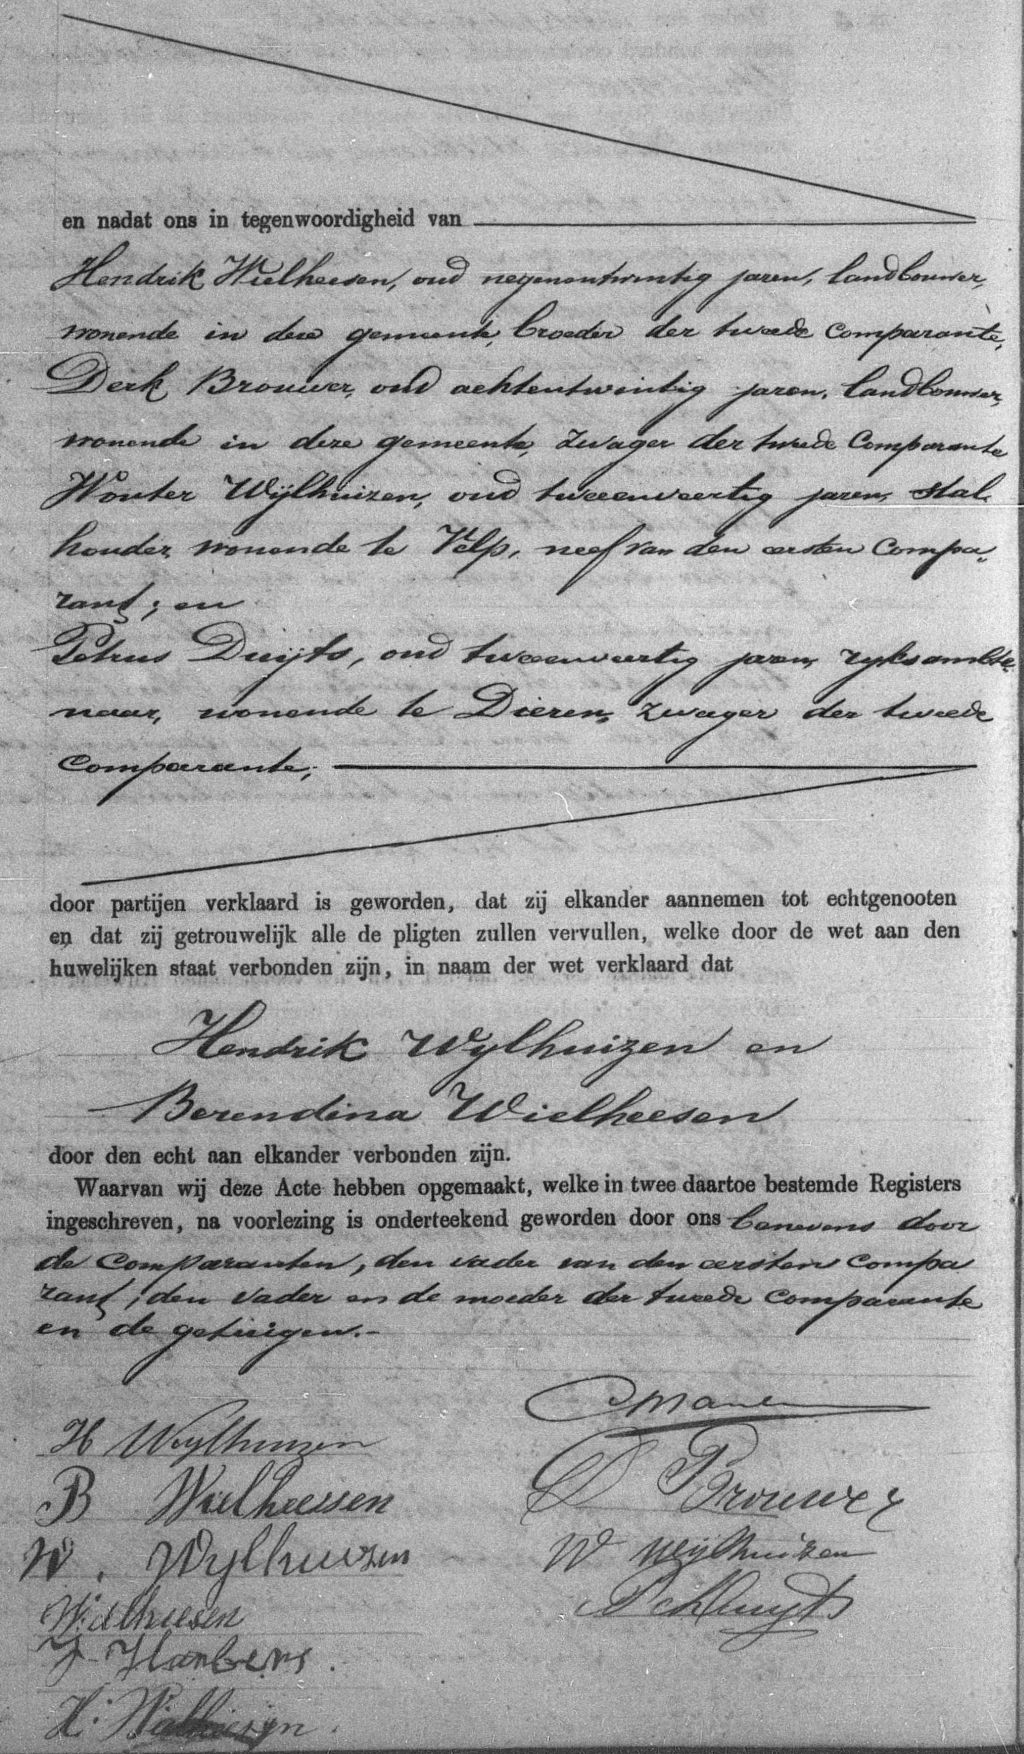 en nadat ons in tegenwoordigheid van
Hendrik Wielheesen, oud negenentwintig jaren, landbouwer,
wonende in deze gemeente, broeder der tweede comparante,
Derk Brouwer, oud achtentwintig jaren, landbouwer,
wonende in deze gemeente, zwager der tweede comparante
Wouter Wijlhuizen, oud tweeenveertig jaren, stal
houder, wonende te Velp, neef van den eersten compa-
rant; en
Petrus Duijts, oud tweeenveertig jaren, rijksambte-
naar, wonende te Dieren, zwager der tweede
comparante;
door partijen verklaard is geworden, dat zij elkander aannemen tot echtgenooten
en dat zij getrouwelijk alle de pligten zullen vervullen, welke door de wet aan den
huwelijken staat verbonden zijn, in naam der wet verklaard dat
Hendrik Wylhuizen en
Berendina Wielheesen
door den echt aan elkander verbonden zijn.
Waarvan wij deze Acte hebben opgemaakt, welke in twee daartoe bestemde Registers
ingeschreven, na voorlezing is onderteekend geworden door ons benevens door
de comparanten, den vader van den eersten compa
rant, den vader en de moeder der tweede comparante
en de getuigen.-
H Wylhuizen
B Wielheessen
D Brouwer
W. Wylhuizen
W Wijlhuizen
Wielheesen